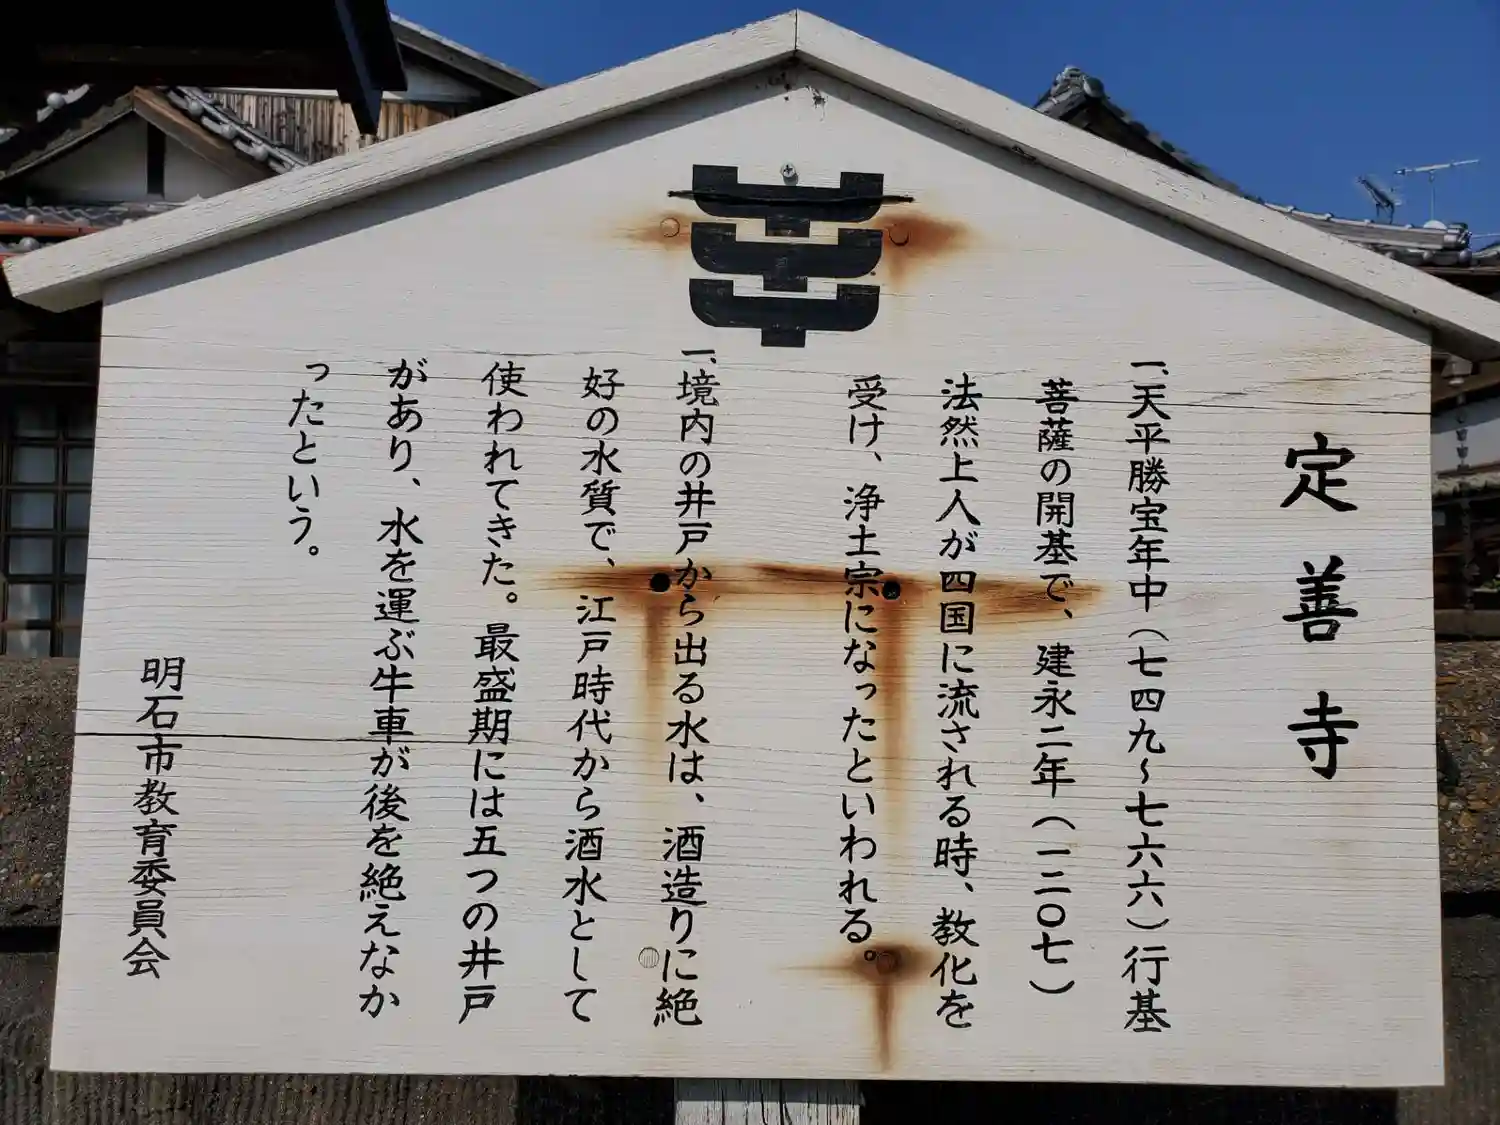 定善寺
一、天平勝宝年中（七四九〜七六六）行基
菩薩の開基で、建永二年（一二〇七）
法然上人が四国に流される時、教化を
受け、浄土宗になったといわれる。
一、境内の井戸から出る水は、酒造りに絶
好の水質で、江戸時代から酒水として
使われてきた。最盛期には五つの井戸
があり、水を運ぶ牛車が後を絶えなか
ったという。
明石市教育委員会